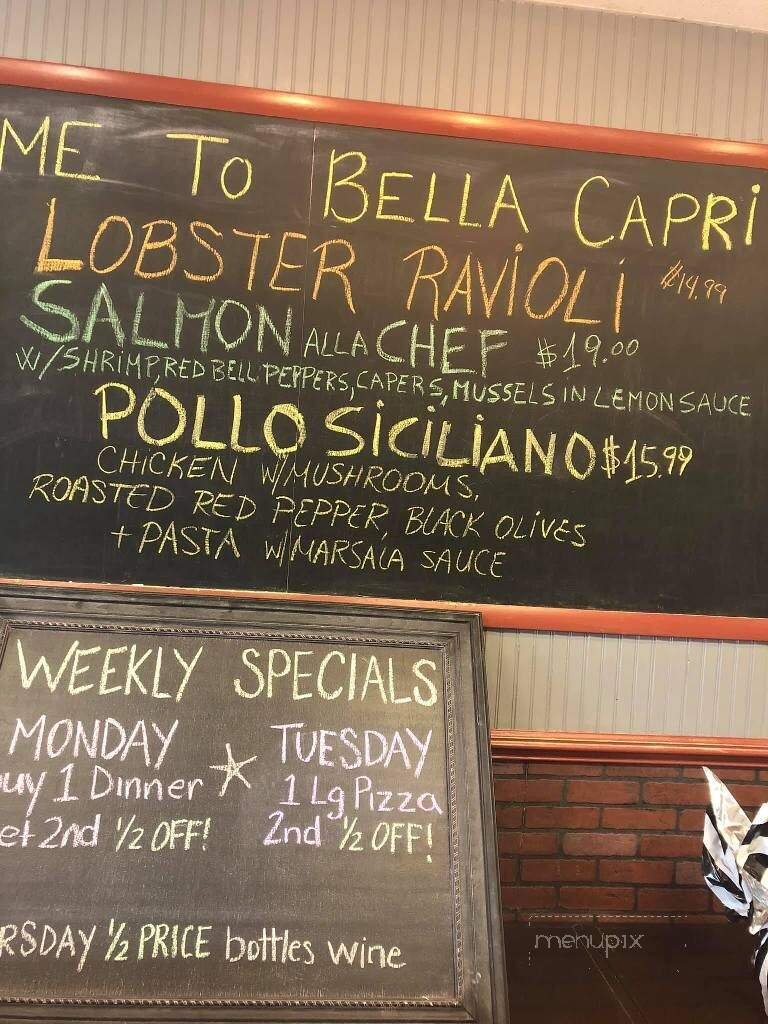 ME TO BELLA CAPRI
LOBSTER RAVIOLI $14.99
SALMON ALLA CHEF $19.00
W/SHRIMP, RED BELL PEPPERS, CAPERS, MUSSELS IN LEMON SAUCE
POLLO SICILIANO $15.99
CHICKEN W/MUSHROOMS,
ROASTED RED PEPPER, BLACK OLIVES
+ PASTA W/MARSALA SAUCE
WEEKLY SPECIALS
MONDAY
uy 1 Dinner
et 2nd 1/2 OFF!
TUESDAY
1 Lg Pizza
2nd 1/2 OFF!
RSDAY 1/2 PRICE bottles wine
menupix